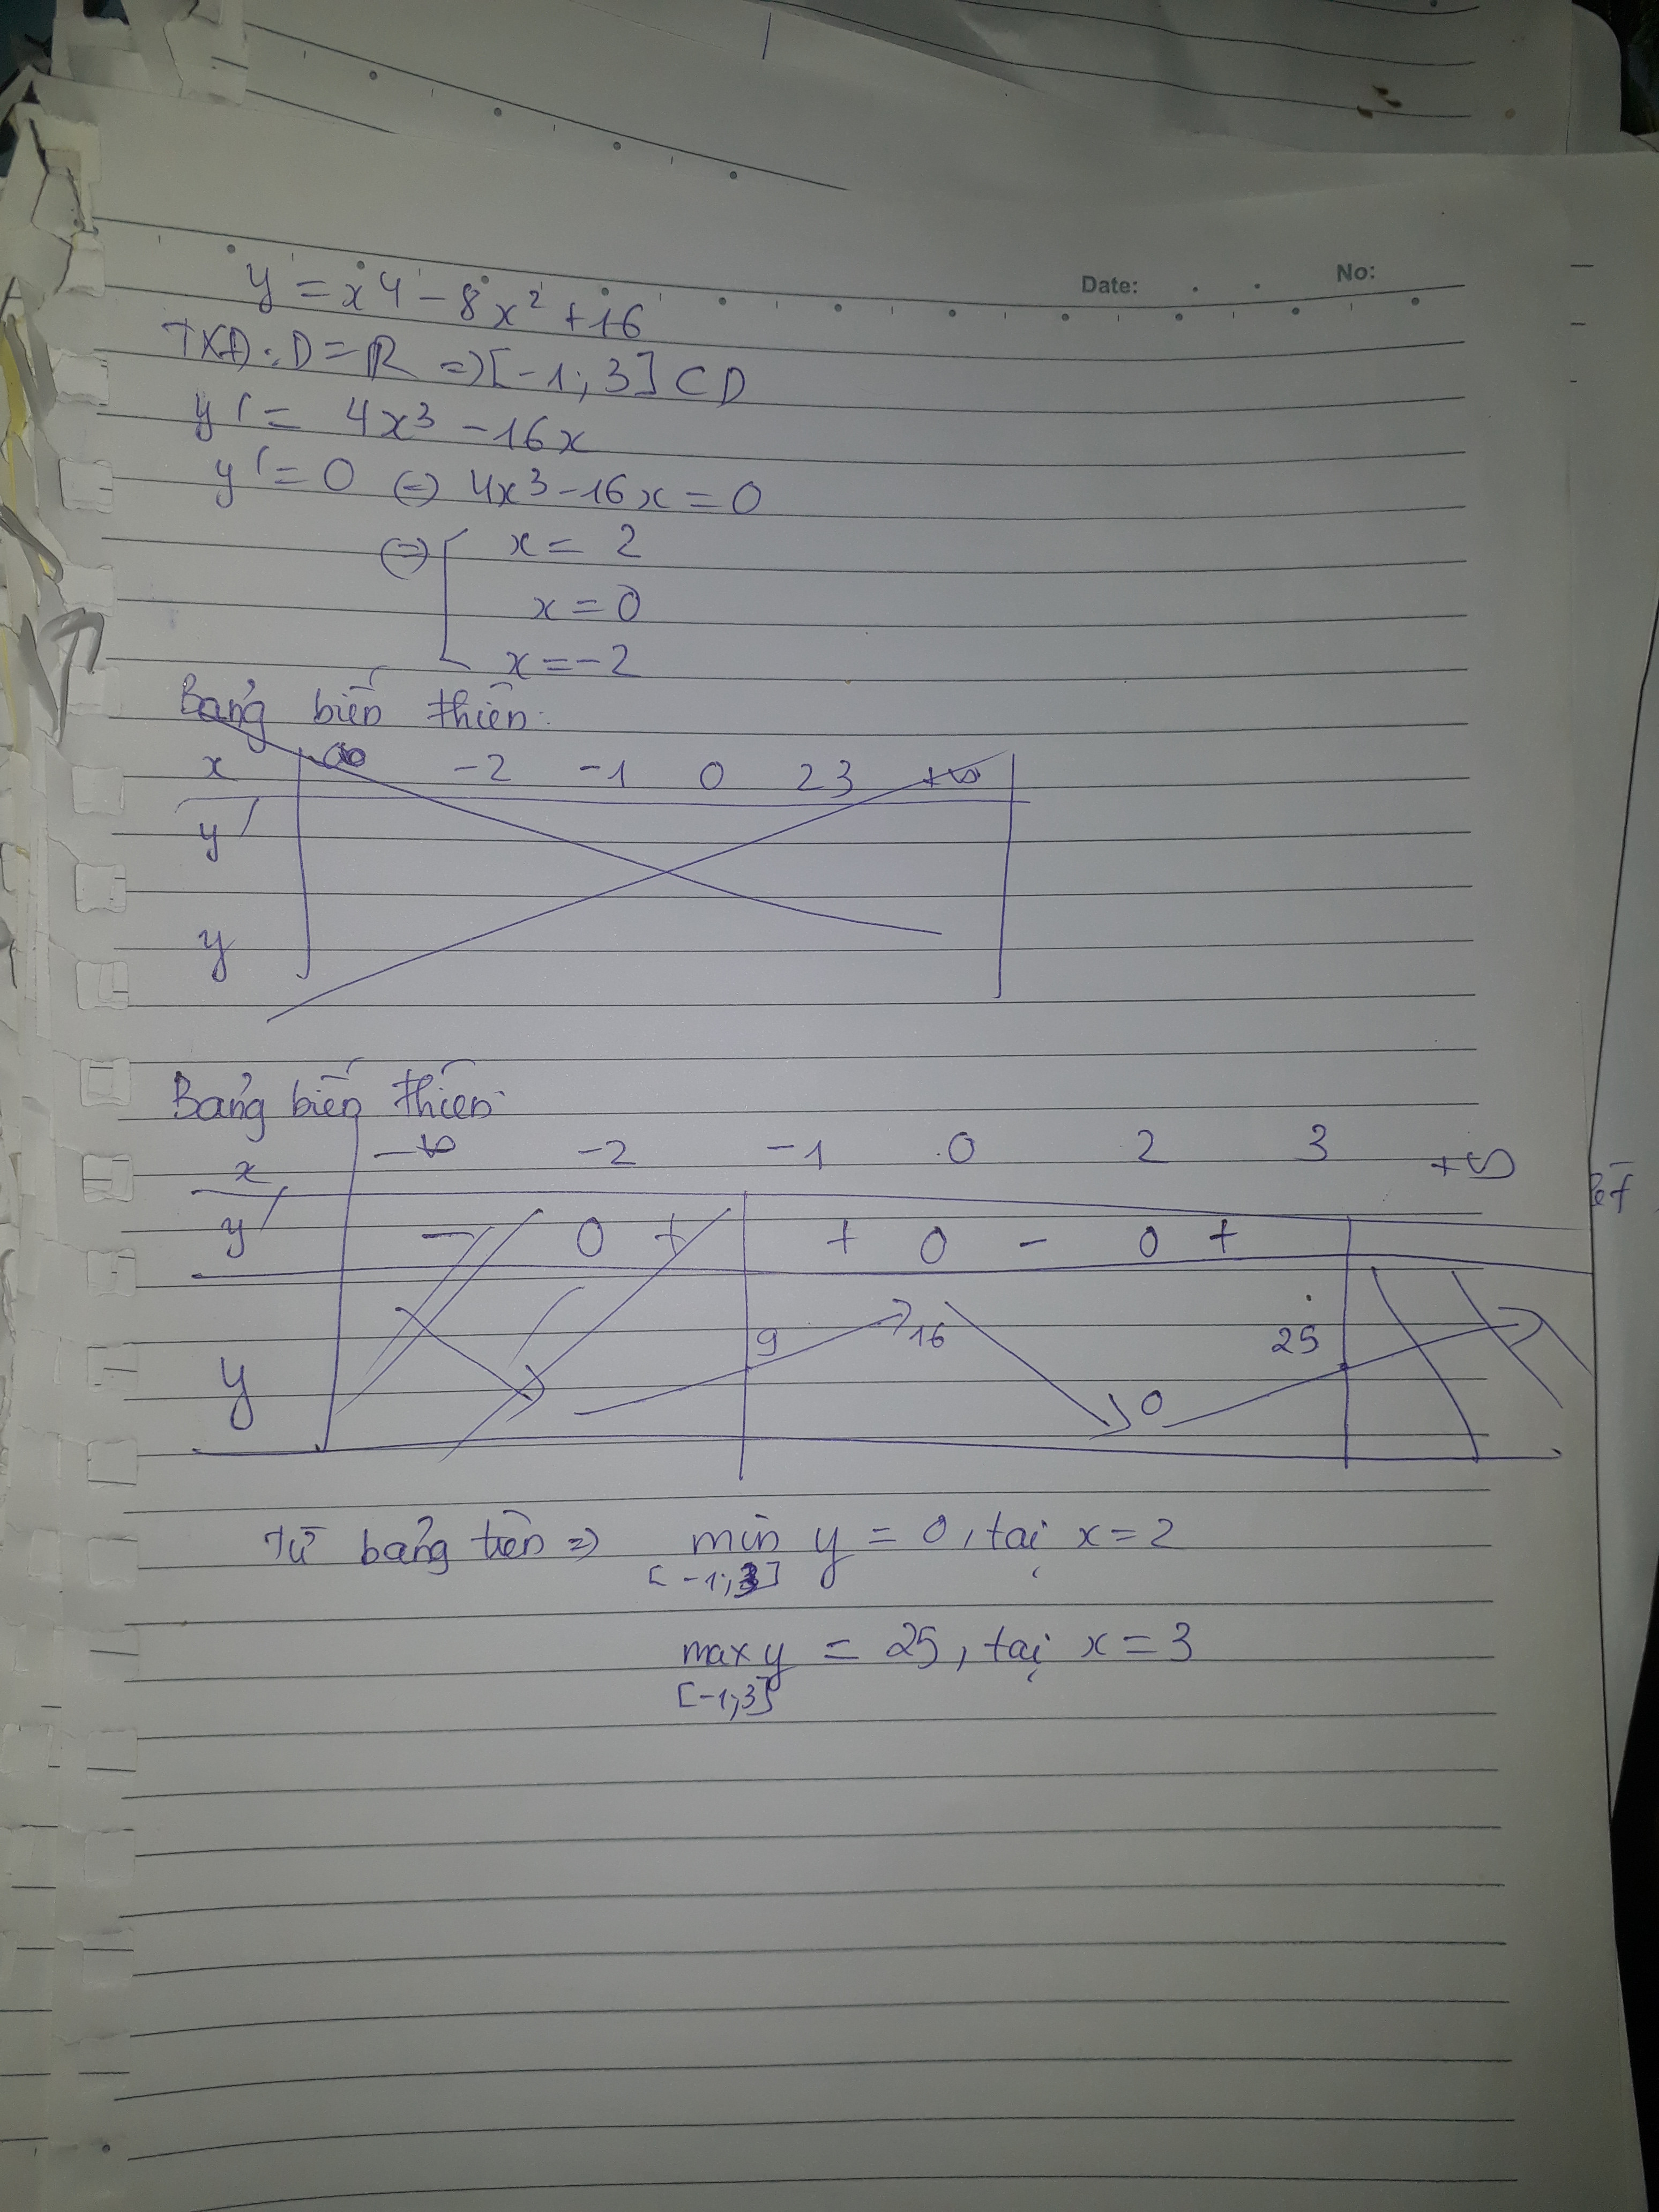 Date: No:
y = x⁴ - 8x² + 16
TXĐ: D = ℝ => [-1; 3] ⊂ D
y' = 4x³ - 16x
y' = 0 (=) 4x³ - 16x = 0
(=) [ x = 2
x = 0
x = -2
Bảng biến thiên:
x -∞ -2 -1 0 2 3 +∞
y'
y
Bảng biến thiên:
x -∞ -2 -1 0 2 3 +∞
y' - 0 + + 0 - 0 +
9 16 25
y 0
Từ bảng trên => min y = 0, tại x = 2
[-1; 3]
max y = 25, tại x = 3
[-1; 3]